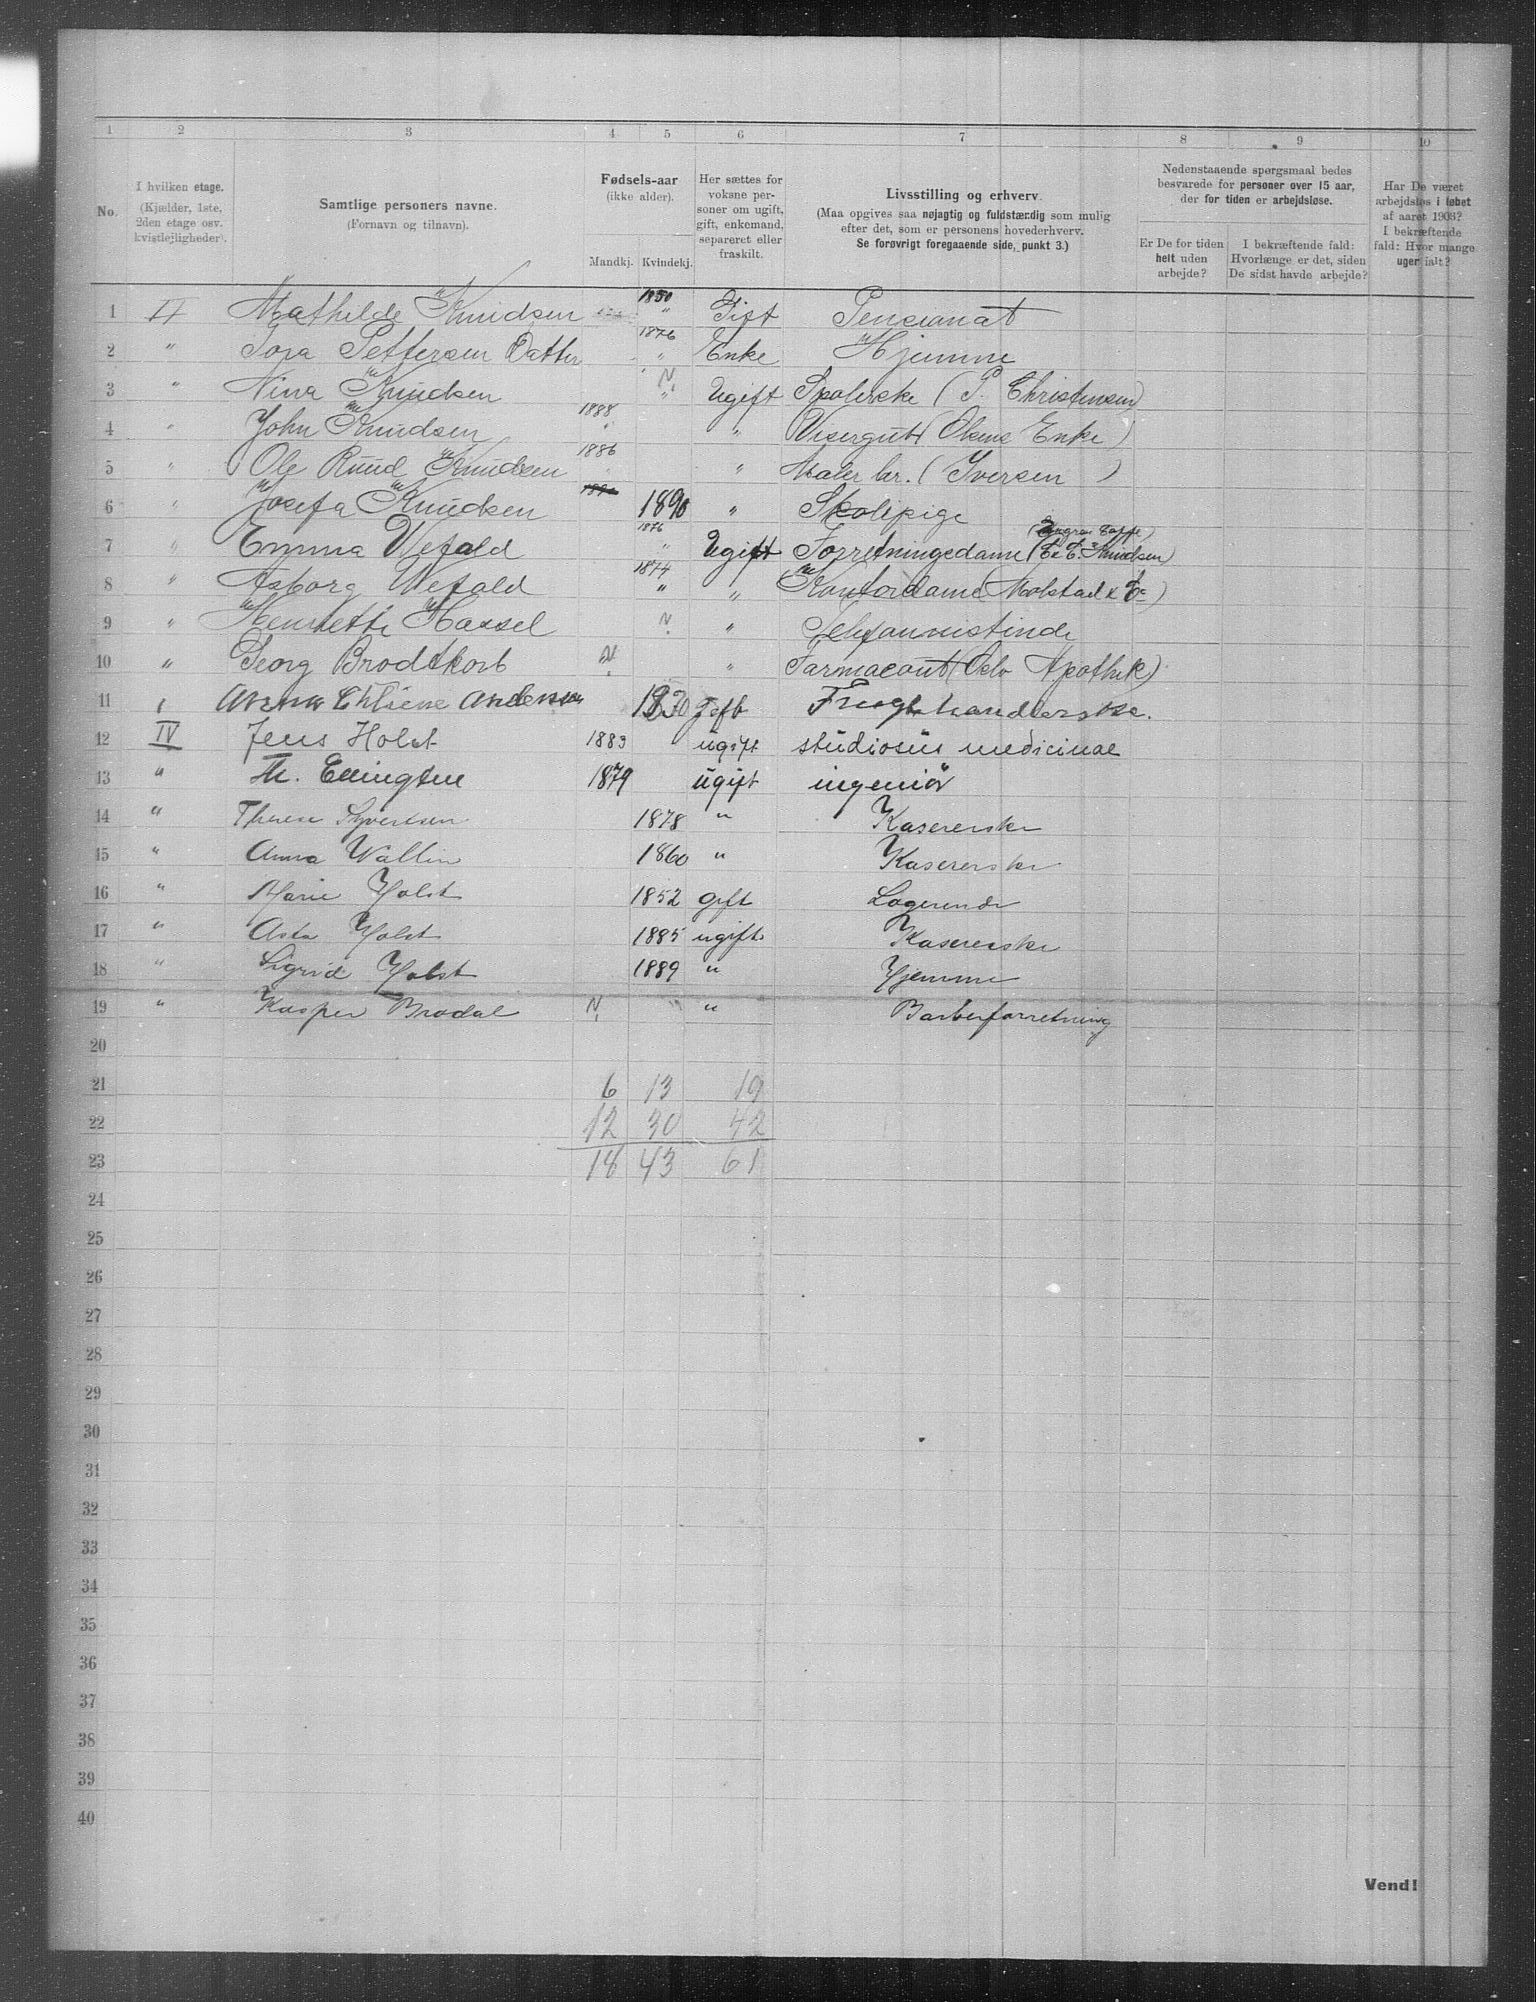 1 2 3 4 5 6 7 8 9 10
No.
I hvilken etage.
(Kjælder, 1ste, 2den etage osv. kvistlejligheder).
Samtlige personers navne.
(Fornavn og tilnavn).
Fødsels-aar
(ikke alder).
Mandkj. Kvindekj.
Her sættes for voksne personer om ugift, gift, enkemand, separeret eller fraskilt.
Livsstilling og erhverv.
(Maa opgives saa nøjagtig og fuldstændig som mulig efter det, som er personens hovederhverv.
Se forøvrigt foregaaende side, punkt 3.)
Nedenstaaende spørgsmaal bedes besvarede for personer over 15 aar, der for tiden er arbejdsløse.
Er De for tiden helt uden arbejde?
I bekræftende fald: Hvorlænge er det, siden De sidst havde arbejde?
Har De været arbejdsløs i løbet af aaret 1903? I bekræftende fald: Hvor mange uger ialt?
1 Mathilde Knudsen 1850 " Gift Pensionat
2 " Pettersen Datter 1876 " Enke Hjemme
3 " Nina Knudsen N. " Ugift (P. Christensen)
4 " John Knudsen 1888 " " Visergut (Olsens Enke)
5 " Ole Ruud Knudsen 1886 " " Maler lær. (Iversen)
6 " Josefa Knudsen 1890 " Skolepige
7 " Emma Wefald 1876 " Ugift Forretningsdame Knudsen)
8 " Asborg Wefald 1874 " " Kontordame (Molstad & Co)
9 " Henriette Hassel N. " Telefonnistinde
10 " Georg Brodtkorb N. " Farmaceut (Oslo Apothek)
11 " Andersen 1870 Gift Frugthandlerske.
12 IV Jens Holst 1883 ugift studiosus medicinae
13 " Th. Ellingsen 1879 ugift ingeniør
14 " Therese Syvertsen 1878 " Kasererske
15 " Anna Wallin 1860 " Kasererske
16 " Marie Holst 1852 gift Logerende
17 " Asta Holst 1885 ugift Kasererske
18 " Sigrid Holst 1889 " Hjemme
19 " Kasper Brodal N. " Barberforretning
20
21 6 13 19
22 12 30 42
23 18 43 61
24
25
26
27
28
29
30
31
32
33
34
35
36
37
38
39
40
Vend!